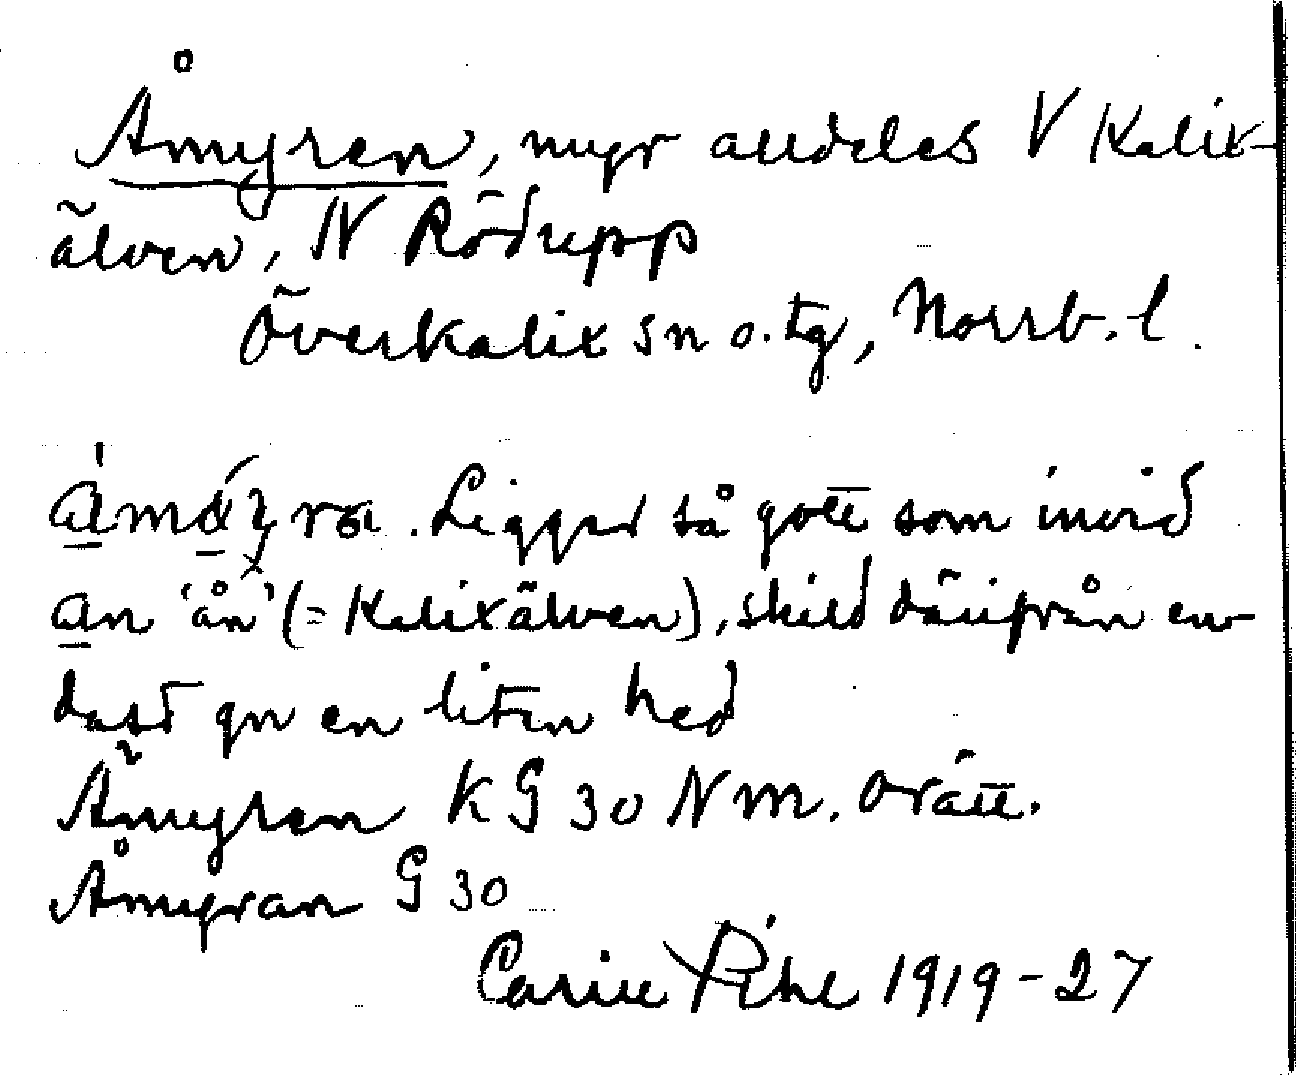 Åmyren, myr alldeles V Kalix-
älven, N Rödupp
Överkalix sn o. tg, Norrb. l.
Ligger så gott som invid
an 'ån' (= Kalixälven), skild därifrån en-
dast gm en liten hed
Ämyren KG 30 Nm. orätt.
Åmyran G 30
Carin Pihl 1919-27